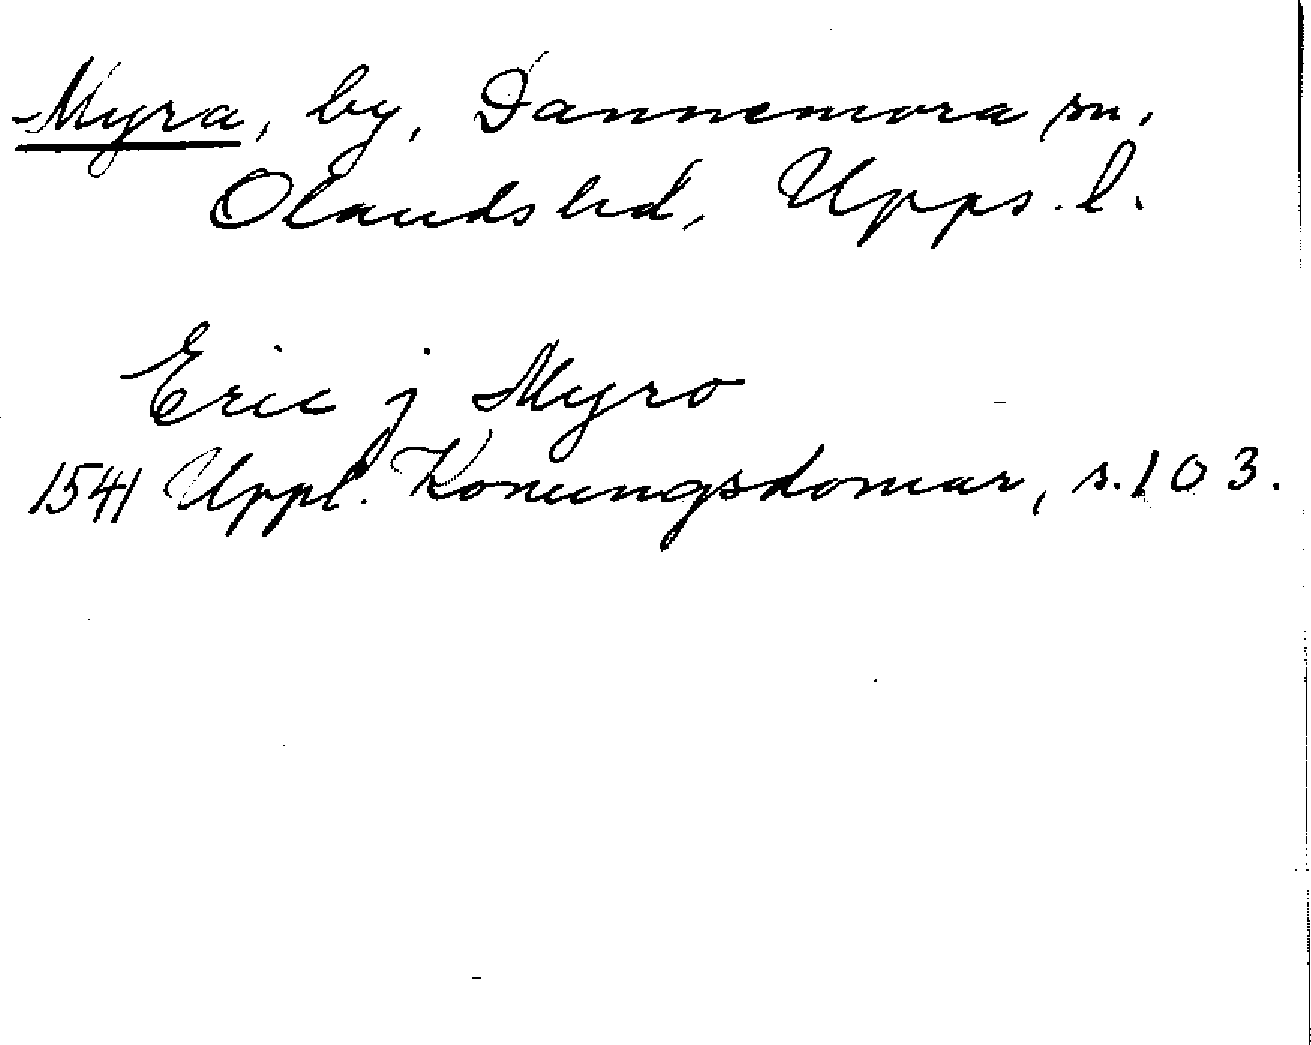 Myra, by, Dannemora sn,
Olands hd, Upps. l.
Eric j Myro
1541 Uppl. Konungsdomar, s. 103.